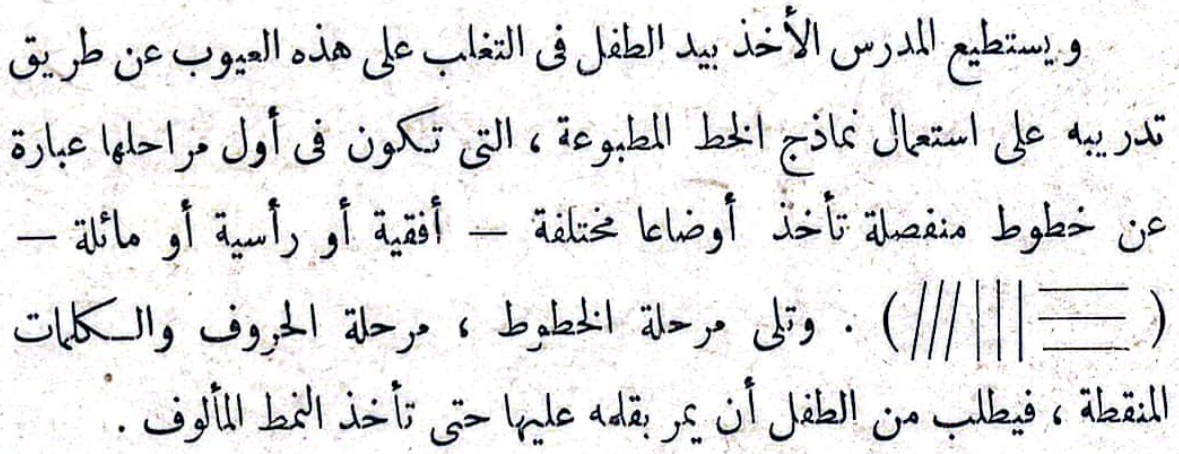 ويستطيع المدرس الأخذ بيد الطفل فى التغلب على هذه العيوب عن طريق
تدريبه على استعمال نماذج الخط المطبوعة ، التى تكون فى أول مراحلها عبارة
عن خطوط منفصلة تأخذ أوضاعا مختلفة — أفقية أو رأسية أو مائلة —
( ) . وتلى مرحلة الخطوط ، مرحلة الحروف والكلمات
المنقطة ، فيطلب من الطفل أن يمر بقلمه عليها حتى تأخذ النمط المألوف .